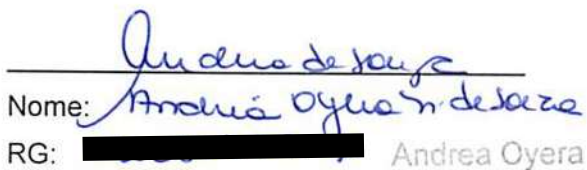 Andrea de Souza
Nome: Andréa Oyera n. de Souza
RG: Andrea Oyera